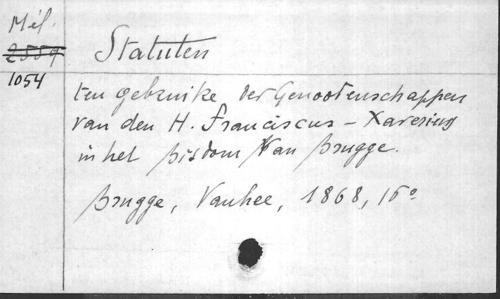 Mél.
2559
1054
Statuten
ten gebruike der Genootenschappen
van den H. Franciscus - Xaverius
in het Bisdom Van Brugge.
Brugge, Vanhee, 1868, 16°